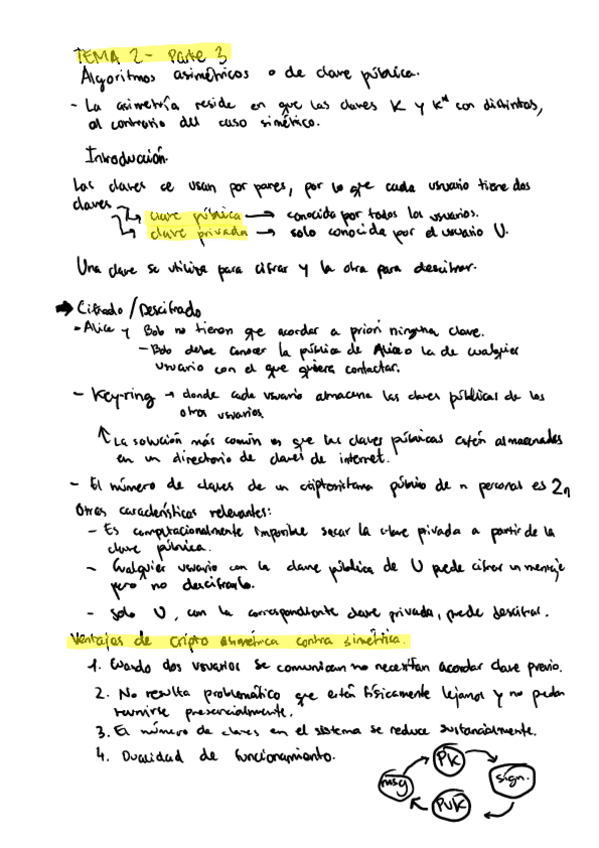 TEMA 2 - Parte 3
Algoritmos asimétricos o de clave pública.
- La asimetría reside en que las claves K y K* son distintas,
al contrario del caso simétrico.
Introducción.
Las claves se usan por pares, por lo que cada usuario tiene dos
claves
↳ clave pública → conocida por todos los usuarios.
↳ clave privada → solo conocida por el usuario U.
Una clave se utiliza para cifrar y la otra para descifrar.
➡ Cifrado / Descifrado
- Alice y Bob no tienen que acordar a priori ninguna clave.
- Bob debe conocer la pública de Alice o la de cualquier
usuario con el que quiera contactar.
- Key-ring → donde cada usuario almacena las claves públicas de los
otros usuarios.
↑ La solución más común es que las claves públicas estén almacenadas
en un directorio de claves de internet.
- El número de claves de un criptosistema público de n personas es 2n
Otras características relevantes:
- Es computacionalmente imposible sacar la clave privada a partir de la
clave pública.
- Cualquier usuario con la clave pública de U puede cifrar un mensaje
pero no descifrarlo.
- Solo U, con la correspondiente clave privada, puede descifrar.
Ventajas de cripto asimétrica contra simétrica.
1. Cuando dos usuarios se comunican no necesitan acordar clave previo.
2. No resulta problemático que están físicamente lejanos y no puedan
reunirse presencialmente.
3. El número de claves en el sistema se reduce sustancialmente.
4. Dualidad de funcionamiento.
PK
msg
sign.
PUK